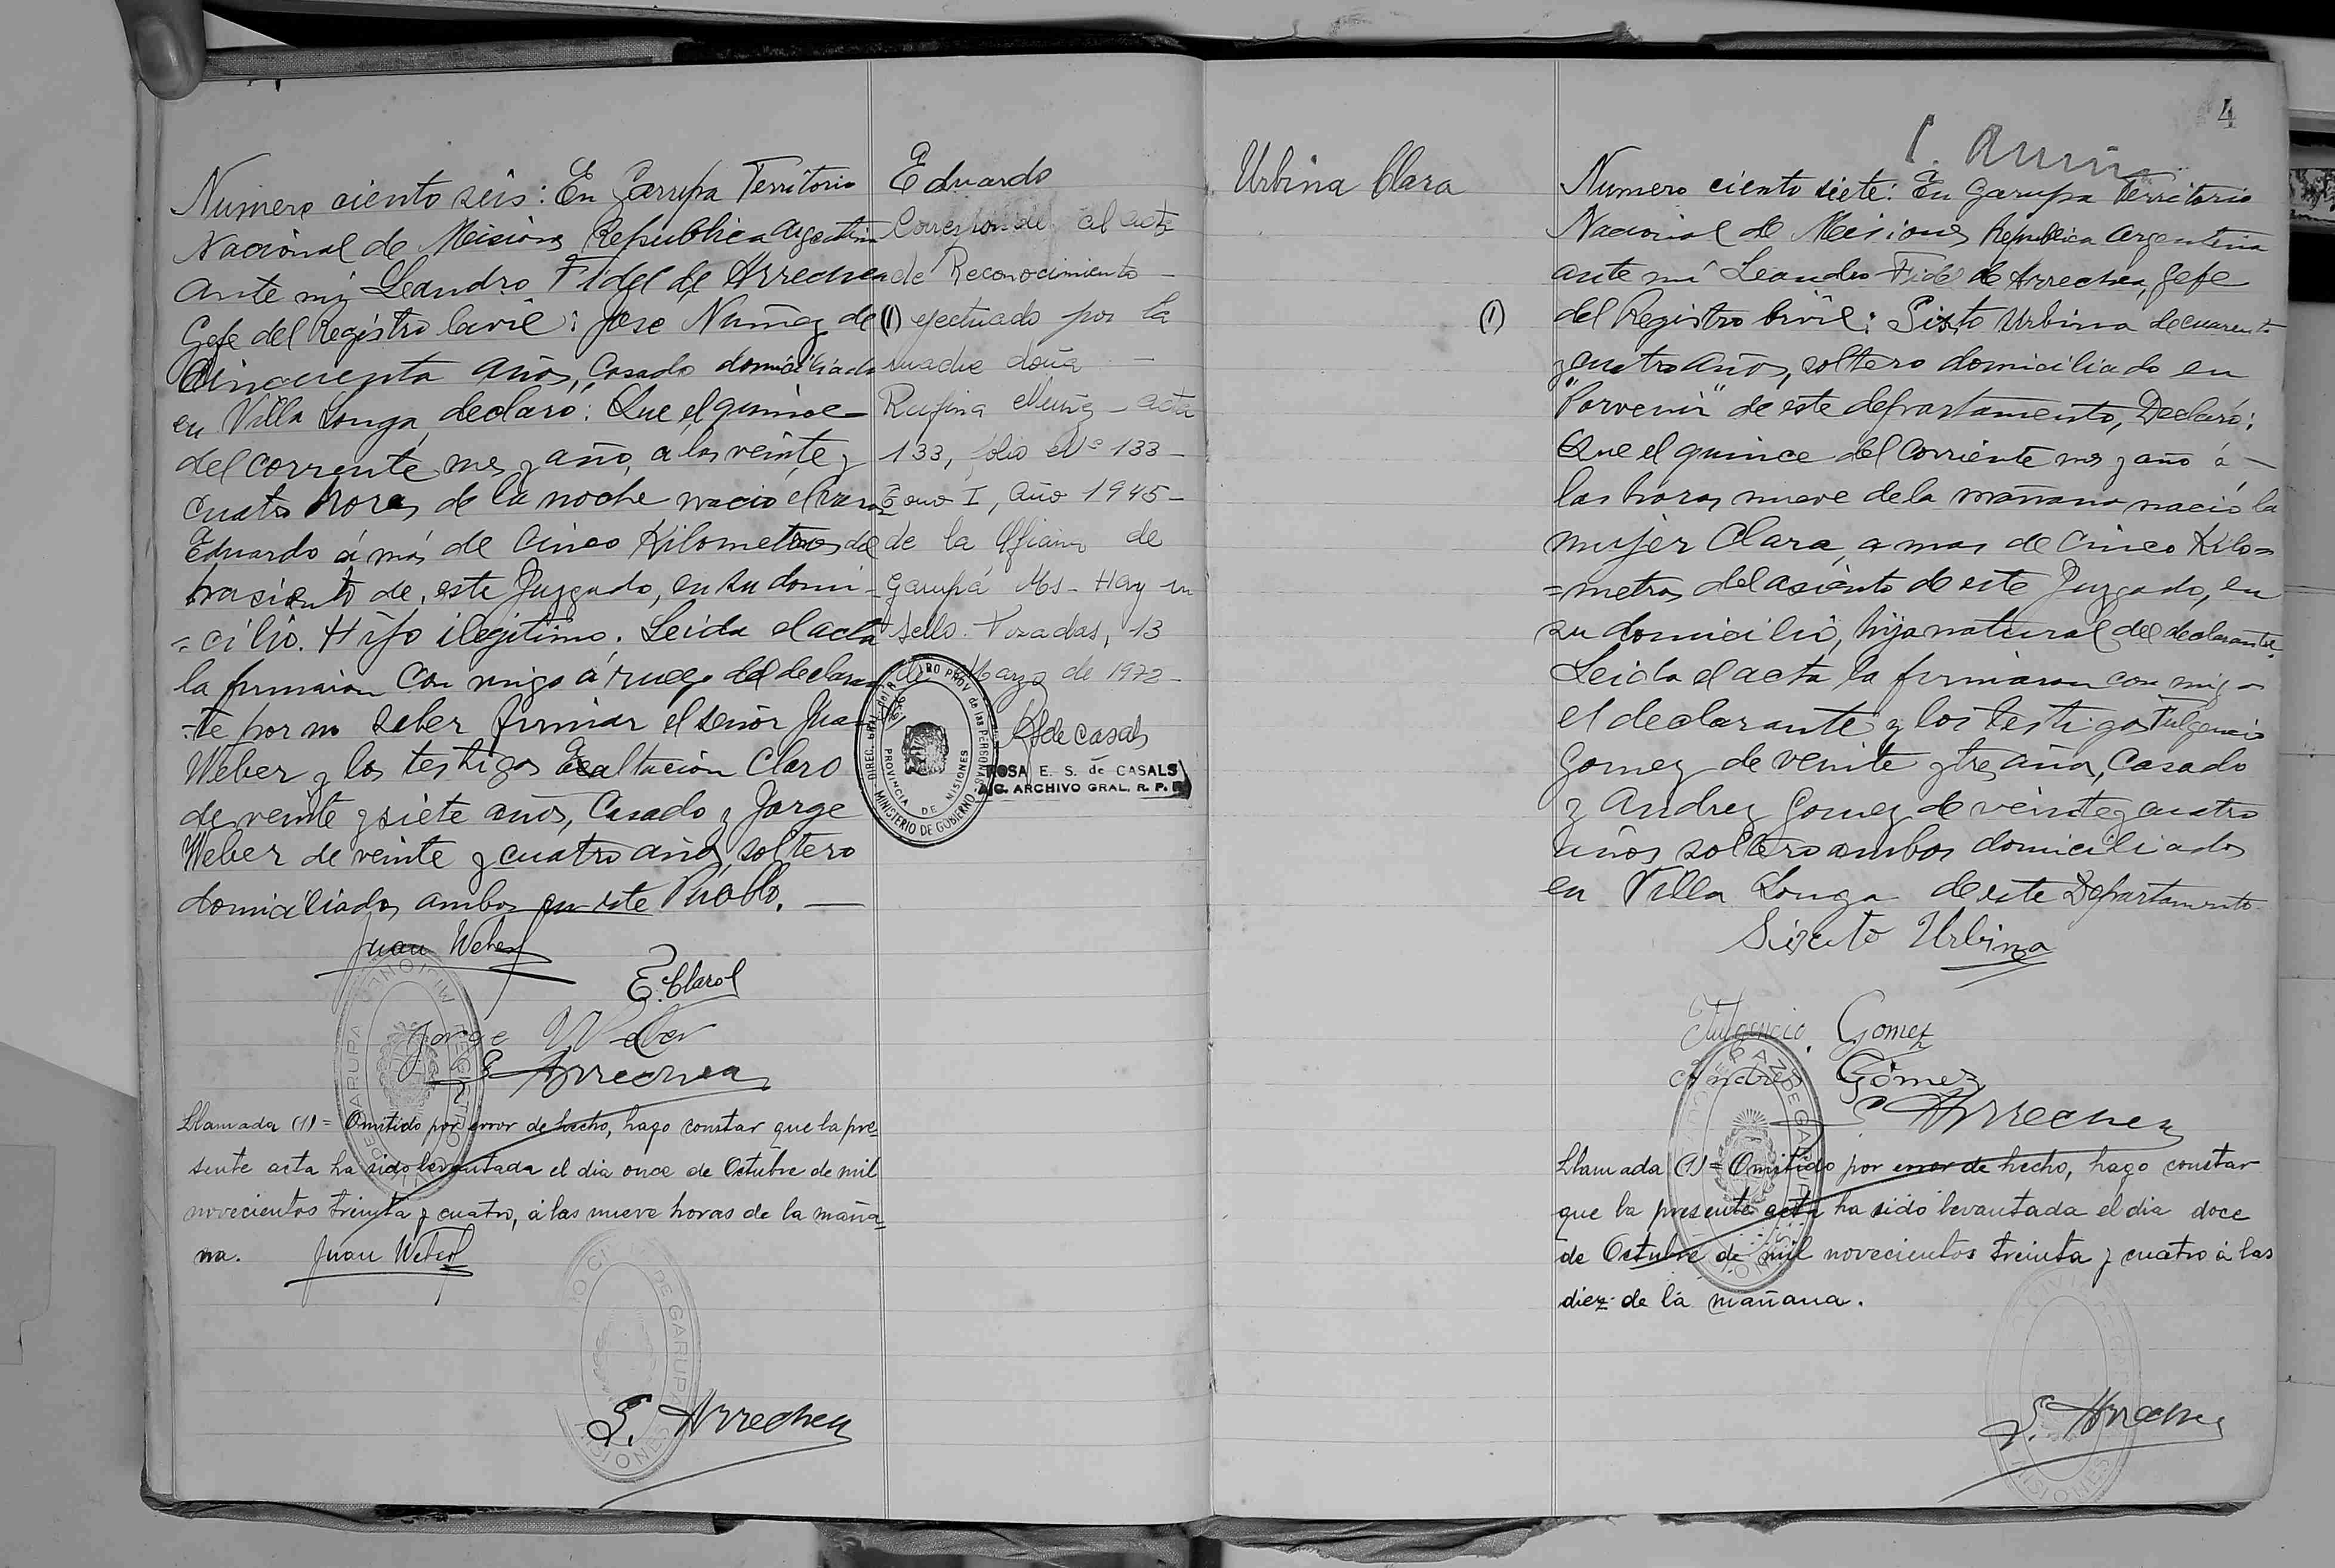 Numero ciento seis: En Garupa Territorio
Nacional de Misiones Republica Argentina
Ante mi Leandro Fidel de Arrechea
Gefe del Registro Civil: Jose Nuñez de
Cinquenta años, Casado domiciliado
en Villa Longa, declaró: Que el quince
del corriente mes y año, a las veinte y
cuatro horas de la noche nacio el varon
Eduardo á más de Cinco Kilometros del
asiento de este Juzgado, en su domi-
=cilio. Hijo ilegitimo. Leida el acta
la firmaron con migo á ruego del declaran
=te por no saber firmar el señor Juan
Weber y los testigos Exaltación Claro
de veinte y siete años, Casado y Jorge
Weber de veinte y cuatro años, soltero
domiciliados ambos en este Pueblo. —
Juan Weber
E. Claro
Jorge Weber
L. Arrechea
Llamada (1) = Omitido por error de hecho, hago constar que la pre=
sente acta ha sido levantada el dia once de Octubre de mil
novecientos treinta y cuatro, á las nueve horas de la maña=
na. Juan Weber
L. Arrechea
Eduardo
Corresponde al acta
de Reconocimiento —
(1) efectuado por la
madre doña —
Rufina Muñz - acta
133, folio Nº 133 -
Tomo I, Año 1945 -
de la Oficina de
Garupá Ms - Hay un
sello. Posadas, 13
de Marzo de 1972 -
R S de Casals
ROSA E. S. de CASALS
ARCHIVO GRAL. R. P.
PROVINCIA DE MISIONES
MINISTERIO DE GOBIERNO
4
Urbina Clara
(1)
Numero ciento siete: En Garupa Territorio
Nacional de Misiones Republica Argentina
ante mí Leandro Fidel de Arrechea, Gefe
del Registro Civil: Sixto Urbina de cuarenta
y cuatro años, soltero domiciliado en
"Porvenir" de este departamento, Declaró:
Que el quince del corriente mes y año á —
las horas nueve de la mañana nació la
mujer Clara, a mas de Cinco Kilo=
=metros del asiento de este Juzgado, en
su domicilio, hija natural del declarante.
Leida el acta la firmaron con migo
el declarante y los testigos Fulgencio
Gomez de veinte y tres años, Casado
y Andrez Gomez de veinte y cuatro
años soltero ambos domiciliados
en Villa Longa de este Departamento
Sixcto Urbina
Fulgencio Gomez
Andres Gómez
L. Arrechea
Llamada (1) = Omitido por error de hecho, hago constar
que la presente acta ha sido levantada el dia doce
de Octubre de mil novecientos treinta y cuatro á las
diez de la mañana.
L. Arrechea